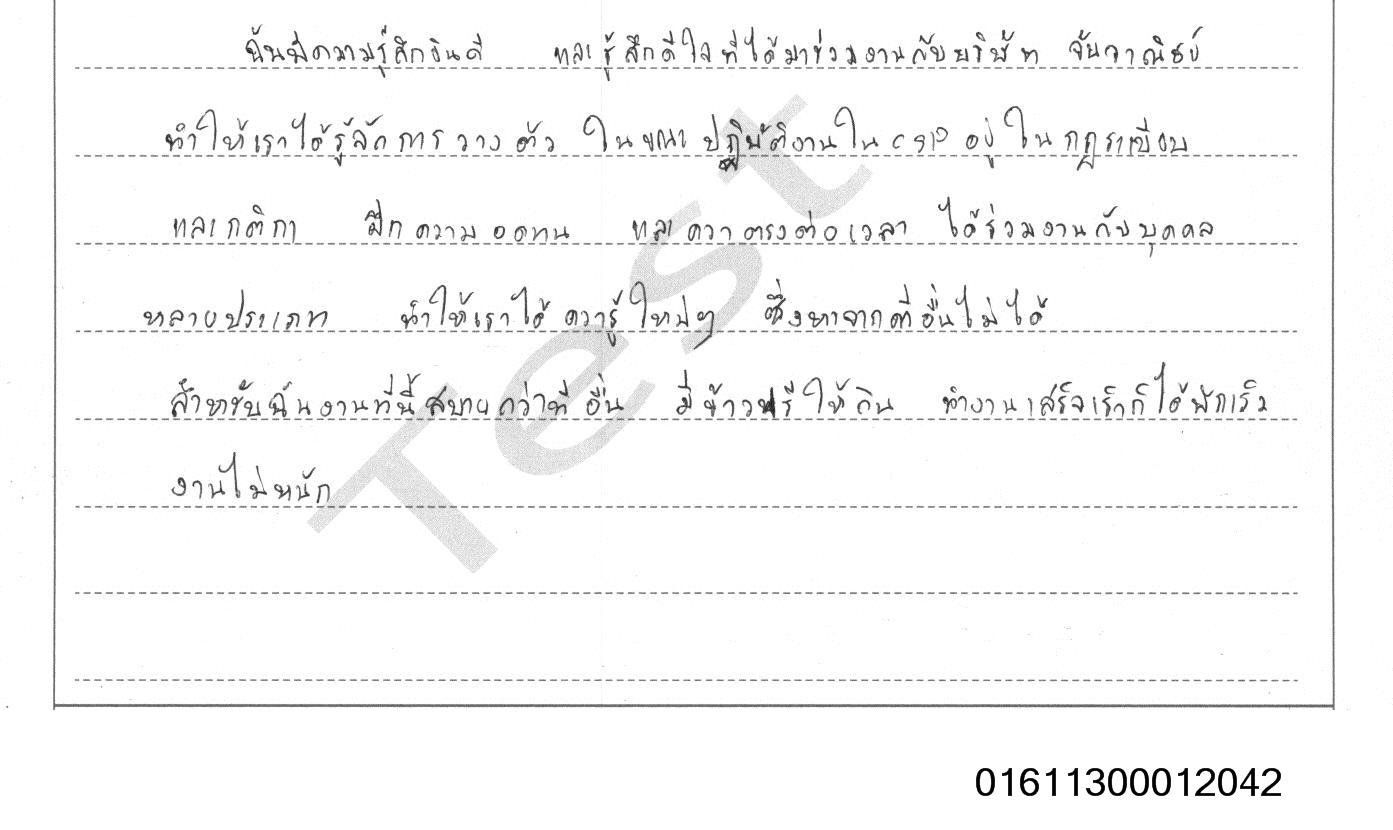 ฉันมีความรู้สึกยินดี และรู้สึกดีใจที่ได้มาร่วมงานกับบริษัท จันวาณิชย์
ทำให้เราได้รู้จักการวางตัว ในขณะปฏิบัติงานใน อยู่ในกฎระเบียบ
และกติกา ฝึกความอดทน และควาตรงต่อเวลา ได้ร่วมงานกับบุคคล
หลายประเภท ทำให้เราได้ควารู้ใหม่ๆ ซึ่งหาจากที่อื่นไม่ได้
สำหรับฉันงานที่นี้สบายกว่าที่อื่น มีข้าวฟรีให้กิน ทำงานเสร็จเร็วก็ได้พักเร็ว
งานไม่หนัก
Test
01611300012042